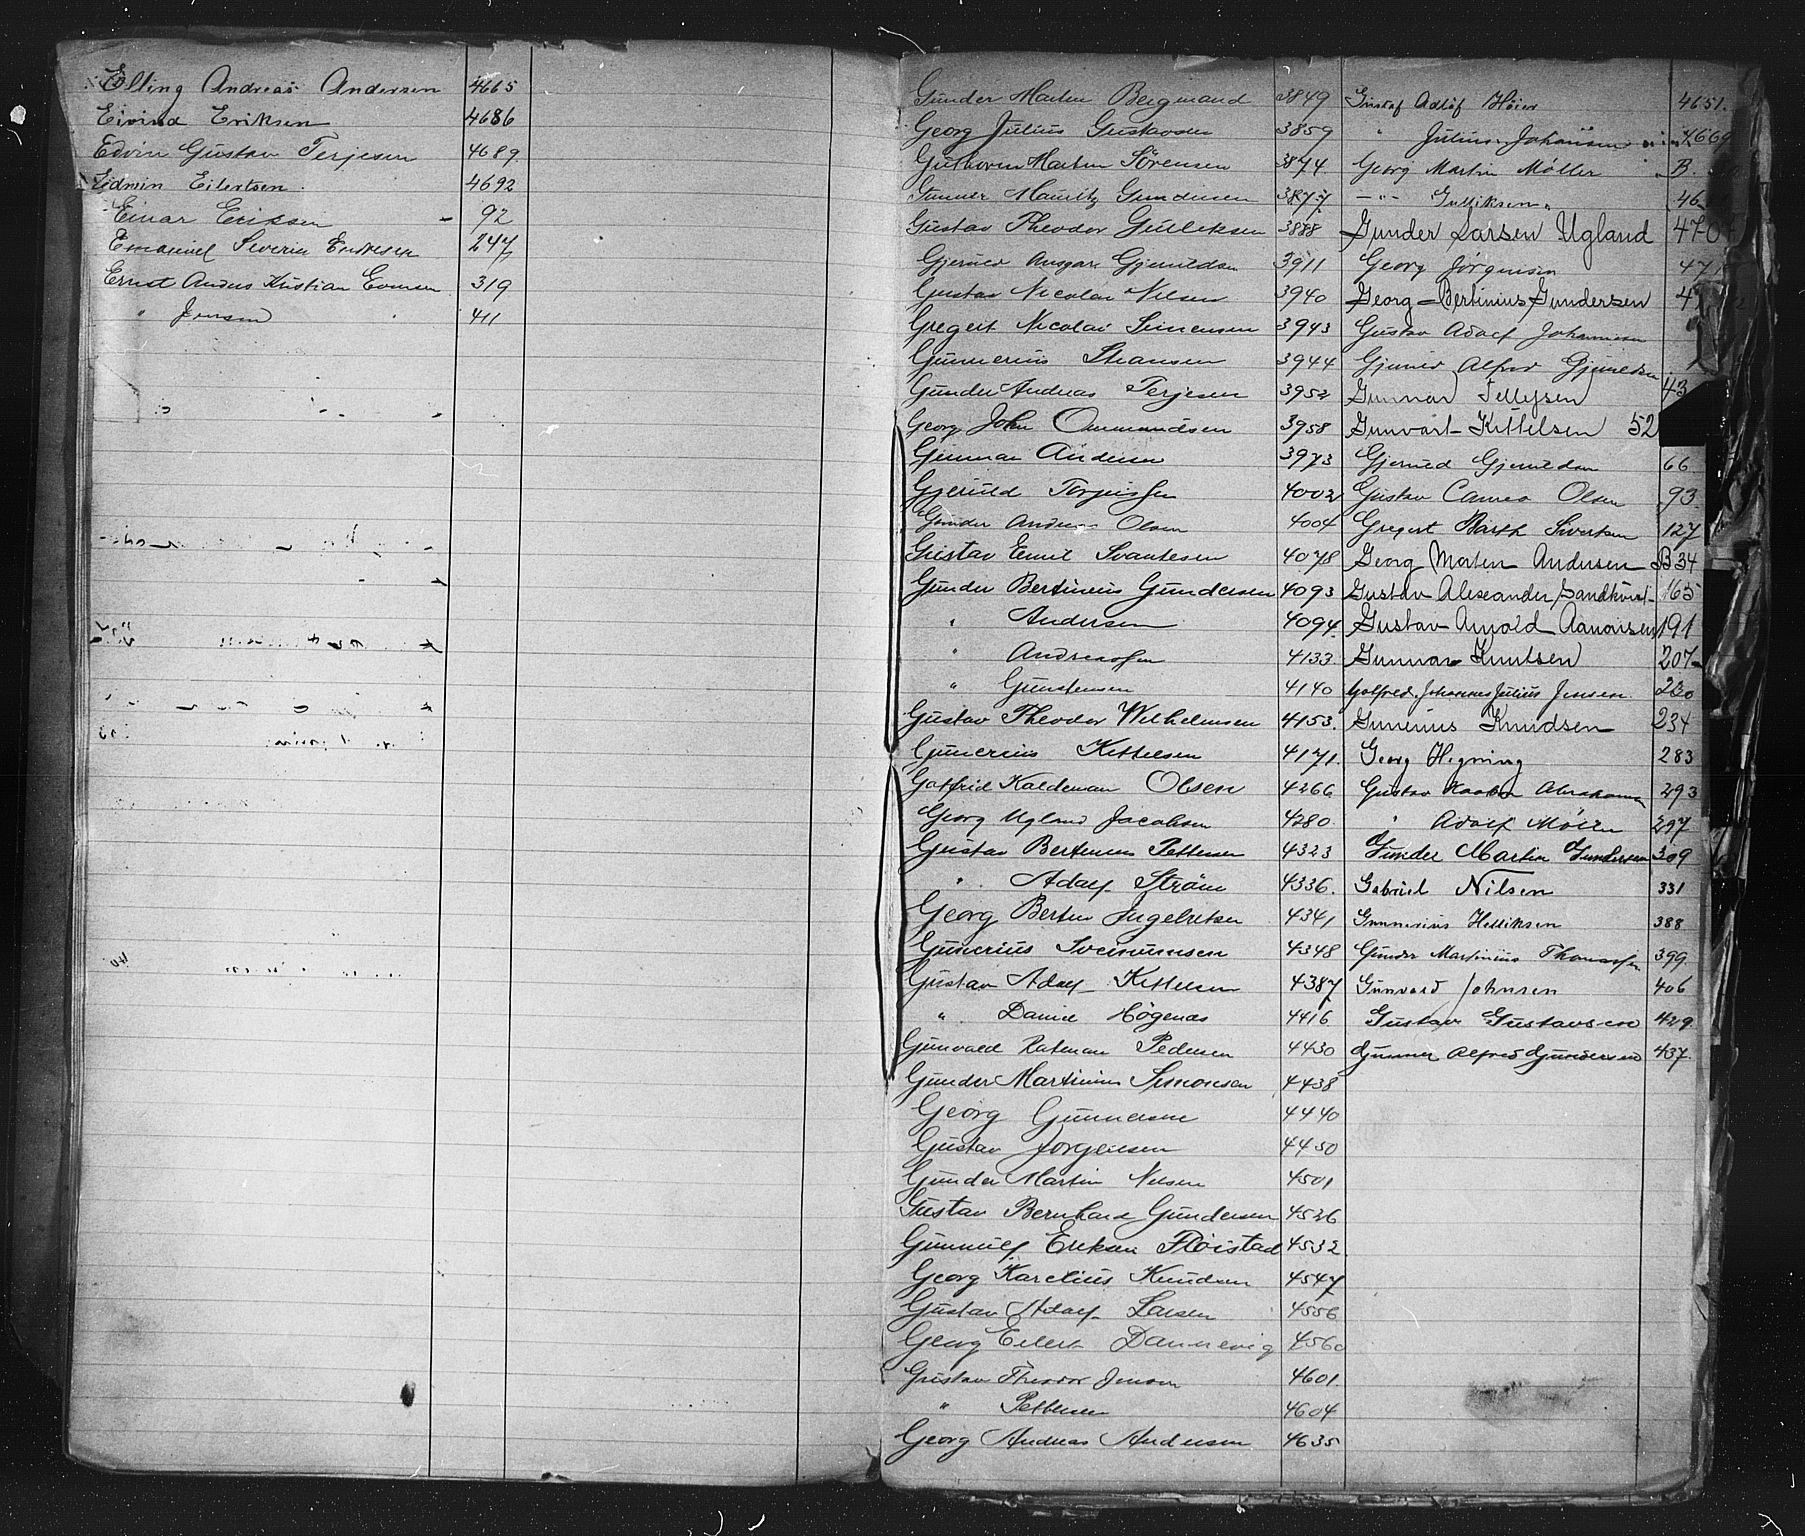 Elling Andreas Andersen 4665
Eivind Eriksen 4686
Edvin Gustav Terjesen 4689
Edmin Eilertsen 4692
Einar Eriksen 92
Emanuel Severin Eriksen 247
Ernst Andus Kristian Evensen 319
" Jensen 411
Gunder Martin Bergmand 3849
Georg Julius Gustavsen 3859
Guthorm Martin Sörensen 3874
Gunner Mauritz Gundersen 3877
Gustav Theodor Gulliksen 3888
Gjerued Ansgar Gjeruldsen 3911
Gustav Nicolai Nilsen 3940
Gregert Nicolai Simensen 3943
Gunnerius Hansen 3944
Gunder Andreas Terjesen 3952
Georg John Ommundsen 3958
Gunnar Andersen 3973
Gjeruld Torjussen 4002
Gunder Andreas Olsen 4004
Gustav Emil Svantesen 4078
Gunder Bertinius Gundersen 4093
" Andersen 4094
" Andreassen 4133
" Gunstensen 4140
Gustav Theodor Wilhelmsen 4153
Gunerius Kittelsen 4171
Gotfried Kaldeman Olsen 4266
Georg Ugland Jacobsen 4280
Gustav Bertinius Pettersen 4323
" Adolf Ström 4336
Georg Bertin Ingebretsen 4341
Gunerius Svenumsen 4348
Gustav Adolf Kittelsen 4387
" Daniel Högenæs 4416
Gunvald Ratman Pedersen 4430
Gunder Martinius Simonsen 4438
Georg Gunnersen 4440
Gustav Jörgensen 4450
Gunder Martin Nilsen 4501
Gustav Bernhard Gundersen 4526
Gunnulf Eriksen Flöistad 4532
Georg Karelius Knudsen 4547
Gustav Adolf Larsen 4556
Georg Eilert Dannevig 4560
Gustav Theodor Jensen 4601
" Pettersen 4604
Georg Andreas Andersen 4635
Gustaf Adolf Höier 4651
" Julius Johansen 4669
Georg Martin Möller B.
—"— Gulliksen 46
Gunder Larsen Ugland 470
Georg Jörgensen 471
Georg Bertinius Gundersen 4
Gustav Adolf Johannesen
Gjerued Alfred Gjeruldsen
Gunnar Tellefsen 43
Gunvart Kittelsen 52
Gjeruld Gjeruldsen 66
Gustav Olsen 93
Gregert Barth Sivertsen 127
Georg Morten Andersen B34
Gustav Alexander Sandkvist 165
Gustav Arnold Aanonsen 191
Gunnar Knutsen 207
Gotfred Johannes Julius Jensen 220
Gunerius Knudsen 234
Georg Higning 283
Gustav Abrahamsen 293
" Adolf Möller 297
Gunder Martin Gundersen 309
Gabriel Nilsen 331
Gunnerius Helliksen 388
Gunder Martinius Thomassen 399
Gunvald Johnsen 406
Gustav Gustavsen 429
Gunner Alfred Gundersen 437